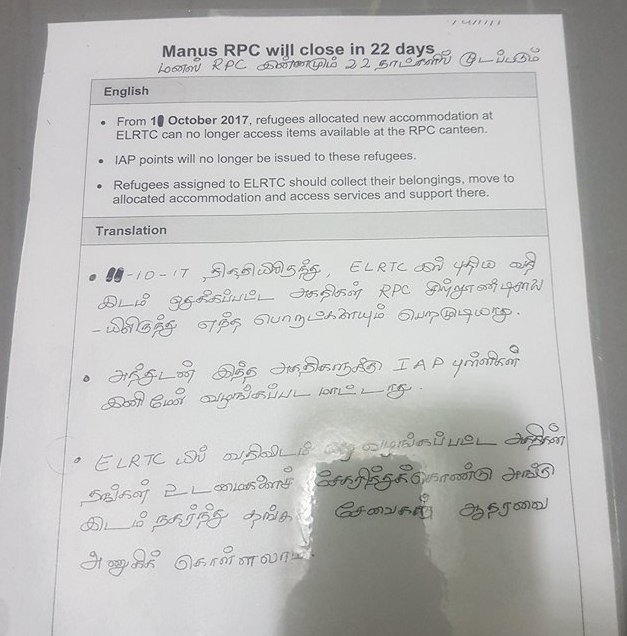 Manus RPC will close in 22 days
மனஸ் RPC இன்னமும் 22 நாட்களில் மூடப்படும்
English
• From 1 October 2017, refugees allocated new accommodation at
ELRTC can no longer access items available at the RPC canteen.
• IAP points will no longer be issued to these refugees.
• Refugees assigned to ELRTC should collect their belongings, move to
allocated accommodation and access services and support there.
Translation
• -10-17 திகதியிலிருந்து, ELRTC இல் புதிய வதி
இடம் ஒதுக்கப்பட்ட அகதிகள் RPC சிற்றுண்டிசாலை
-யிலிருந்து எந்த பொருட்களையும் பெறமுடியாது.
• அத்துடன் இந்த அகதிகளுக்கு IAP புள்ளிகள்
இனிமேல் வழங்கப்பட மாட்டாது.
• ELRTC யில் வதிவிடம் வழங்கப்பட்ட அகதிகள்
தங்கள் உடமைகளைச் சேகரித்துக்கொண்டு அங்கு
இடம் நகர்ந்து தங்க சேவைகள் ஆதரவை
அணுகிக் கொள்ளலாம்.